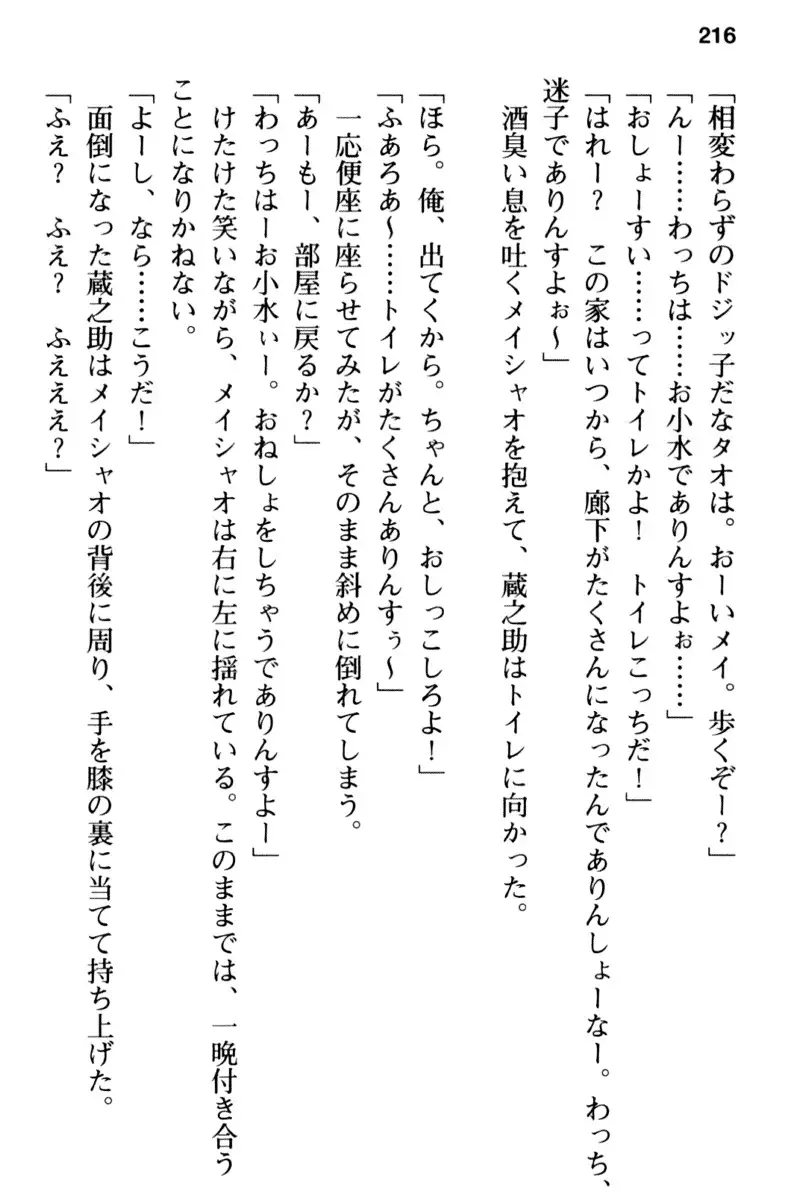 216
「相変わらずのドジッ子だなタオは。おーいメイ。歩くぞー?」
「んー……わっちは……お小水でありんすよぉ……」
「おしょーすい……ってトイレかよ! トイレこっちだ!」
「はれー? この家はいつから、廊下がたくさんになったんでありんしょーなー。わっち、
迷子でありんすよぉ〜」
酒臭い息を吐くメイシャオを抱えて、蔵之助はトイレに向かった。
「ほら。俺、出てくから。ちゃんと、おしっこしろよ!」
「ふあろあ〜……トイレがたくさんありんすぅ〜」
一応便座に座らせてみたが、そのまま斜めに倒れてしまう。
「あーもー、部屋に戻るか?」
「わっちはーお小水ぃー。おねしょをしちゃうでありんすよー」
けたけた笑いながら、メイシャオは右に左に揺れている。このままでは、一晩付き合う
ことになりかねない。
「よーし、なら……こうだ!」
面倒になった蔵之助はメイシャオの背後に周り、手を膝の裏に当てて持ち上げた。
「ふえ? ふえ? ふえええ?」